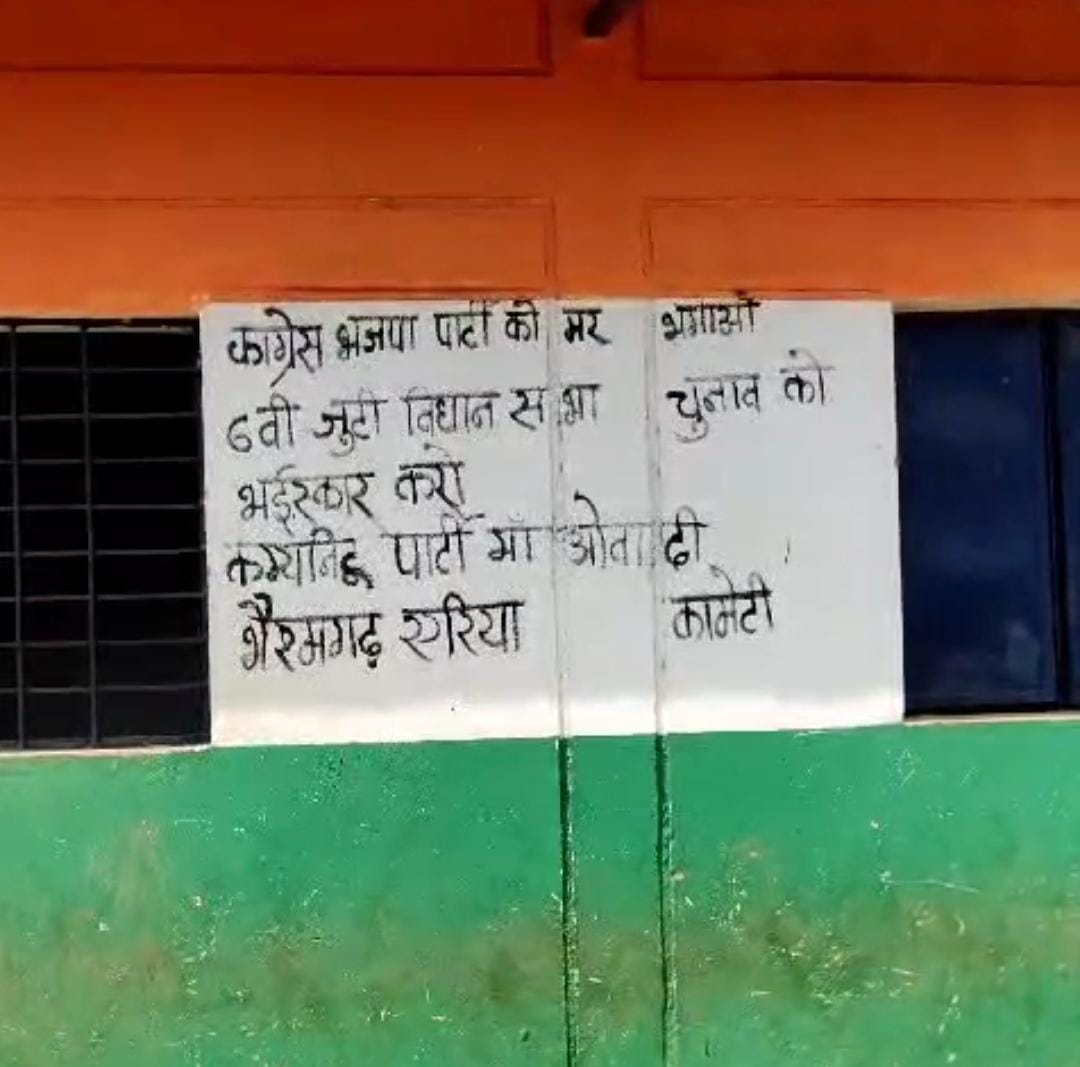 काग्रेस भाजपा पार्टी को मर भगाओ
6वी जुटी विधान सभा चुनाव को
भईस्कार करो
कम्यनिष्ठ पार्टी माँ ओवादी
भैरमगढ़ एरिया कामेटी